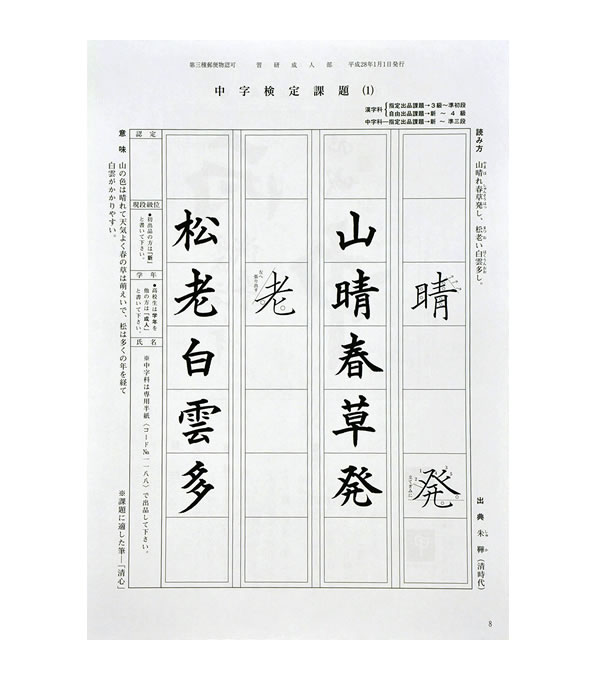 第三種郵便物認可　書研成人部　平成28年1月1日発行
中字検定課題 (1)
漢字科 指定出品課題→3級～準初段
自由出品課題→新～4級
中字科―指定出品課題→新～準三段
読み方
山晴れ春草発し、松老い白雲多し。
出典 朱 (清時代)
晴
発
山晴春草発
老
左へ
松老白雲多
認定
現段級位
●初出品の方は「新」
と書いて下さい。
学年
●高校生は学年を
他の方は「成人」
と書いて下さい。
氏名
※中字科は専用半紙（コード№一一八八）で出品して下さい。
意味
山の色は晴れて天気よく春の草は萌えいで、松は多くの年を経て
白雲がかかりやすい。
※課題に適した筆―「清心」
8